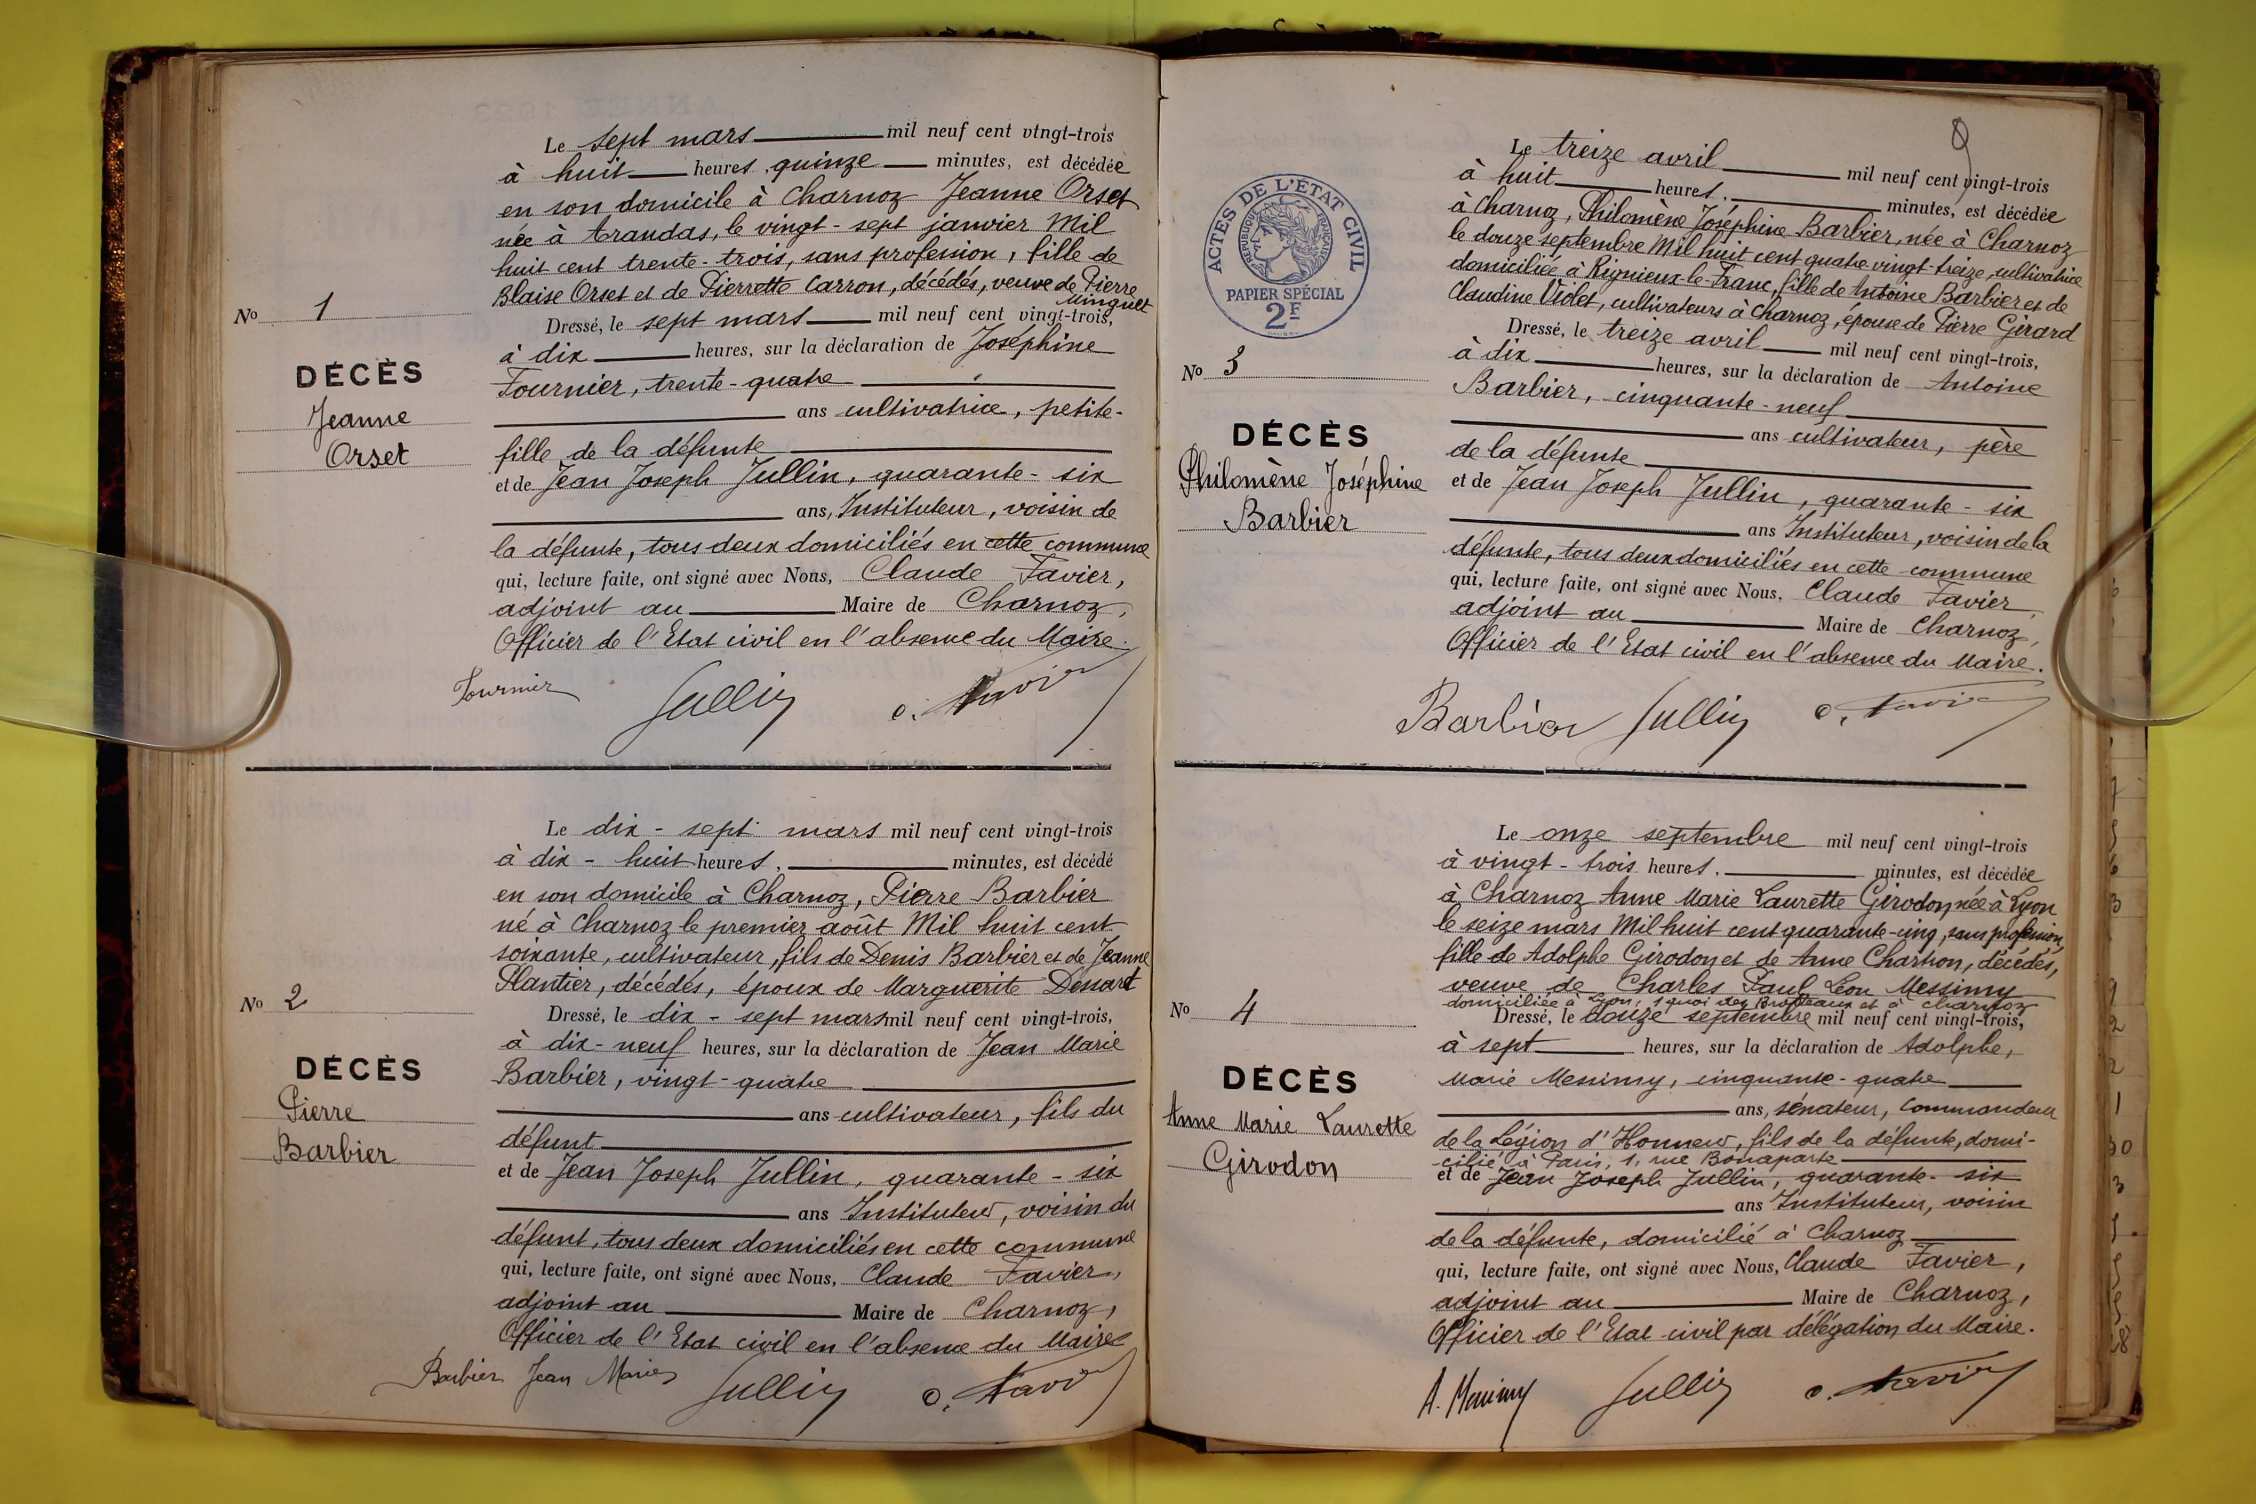 Le sept mars mil neuf cent vingt-trois
à huit heures quinze minutes, est décédée
en son domicile à Charnoz Jeanne Orset
née à Arandas, le vingt-sept janvier Mil
huit cent trente-trois, sans profession, fille de
Blaise Orset et de Pierrette Carron, décédés, veuve de Pierre
Minguet
No 1
Dressé, le sept mars mil neuf cent vingt-trois,
à dix heures, sur la déclaration de Joséphine
DÉCÈS
Jeanne
Orset
Fournier, trente-quatre
ans cultivatrice, petite-
fille de la défunte
et de Jean Joseph Jullin, quarante-six
ans, Instituteur, voisin de
la défunte, tous deux domiciliés en cette commune
qui, lecture faite, ont signé avec Nous, Claude Favier,
adjoint au Maire de Charnoz,
Officier de l'Etat civil en l'absence du Maire.
Fournier Jullin C. Favier
Le dix-sept mars mil neuf cent vingt-trois
à dix-huit heures. minutes, est décédé
en son domicile à Charnoz, Pierre Barbier
né à Charnoz le premier août Mil huit cent
soixante, cultivateur, fils de Denis Barbier et de Jeanne
Plantier, décédés, époux de Marguerite
No 2
Dressé, le dix-sept mars mil neuf cent vingt-trois,
à dix-neuf heures, sur la déclaration de Jean Marie
DÉCÈS
Pierre
Barbier
Barbier, vingt-quatre
ans cultivateur, fils du
défunt
et de Jean Joseph Jullin, quarante-six
ans Instituteur, voisin du
défunt, tous deux domiciliés en cette commune
qui, lecture faite, ont signé avec Nous, Claude Favier,
adjoint au Maire de Charnoz,
Officier de l'Etat civil en l'absence du Maire
Barbier Jean Marie Jullin C. Favier
9
ACTES DE L'ÉTAT CIVIL
RÉPUBLIQUE FRANÇAISE
PAPIER SPÉCIAL
2F
Le treize avril mil neuf cent vingt-trois
à huit heures. minutes, est décédée
à Charnoz, Philomène Joséphine Barbier, née à Charnoz
le douze septembre Mil huit cent quatre vingt-treize, cultivatrice
domiciliée à Rignieux-le-Franc, fille de Antoine Barbier et de
Claudine Violet, cultivateurs à Charnoz, épouse de Pierre Girard
No 3
Dressé, le treize avril mil neuf cent vingt-trois,
à dix heures, sur la déclaration de Antoine
DÉCÈS
Philomène Joséphine
Barbier
Barbier, cinquante-neuf
ans cultivateur, père
de la défunte
et de Jean Joseph Jullin, quarante-six
ans Instituteur, voisin de la
défunte, tous deux domiciliés en cette commune
qui, lecture faite, ont signé avec Nous, Claude Favier,
adjoint au Maire de Charnoz,
Officier de l'Etat civil en l'absence du Maire.
Barbier Jullin C. Favier
Le onze septembre mil neuf cent vingt-trois
à vingt-trois heures. minutes, est décédée
à Charnoz Anne Marie Laurette Girodon, née à Lyon
le seize mars Mil huit cent quarante-cinq, sans profession,
fille de Adolphe Girodon et de Anne Chartron, décédés,
veuve de Charles Paul Léon Messimy
domiciliée à Lyon, 1 quai des Brotteaux et à Charnoz
No 4
Dressé, le douze septembre mil neuf cent vingt-trois,
à sept heures, sur la déclaration de Adolphe,
DÉCÈS
Anne Marie Laurette
Girodon
Marie Messimy, cinquante-quatre
ans, sénateur, Commandeur
de la Légion d'Honneur, fils de la défunte, domi-
cilié à Paris, 1, rue Bonaparte
et de Jean Joseph Jullin, quarante-six
ans Instituteur, voisin
de la défunte, domicilié à Charnoz
qui, lecture faite, ont signé avec Nous, Claude Favier,
adjoint au Maire de Charnoz,
Officier de l'Etat civil par délégation du Maire.
A. Messimy Jullin C. Favier